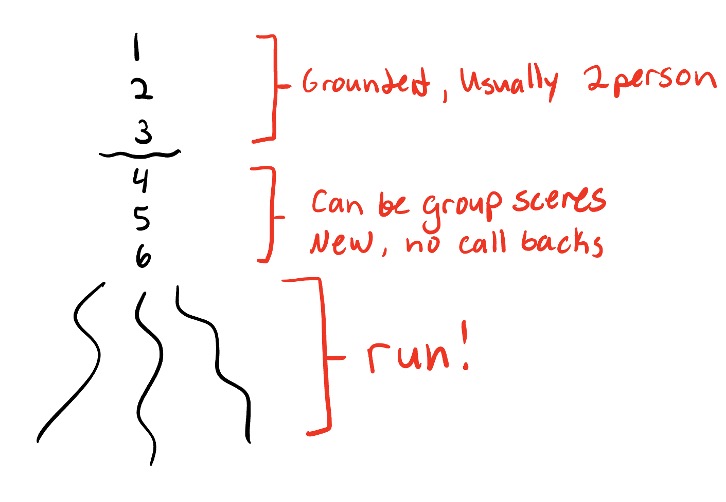 1
2
3
Grounded, Usually 2 person
4
5
6
Can be group scenes
New, no call backs
run!